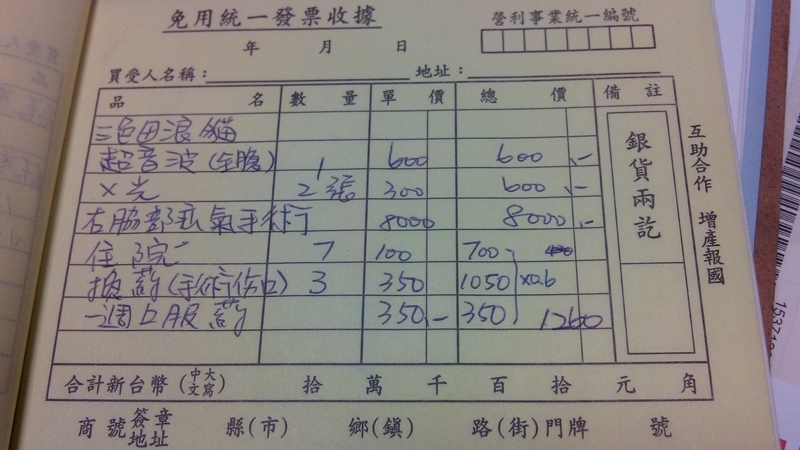 免用統一發票收據
營利事業統一編號
年 月 日
買受人名稱： 地址：
品名 數量 單價 總價 備註
三色田浪貓
超音波(全腹) 1 600 600.-
X光 2張 300 600.-
右脇部疝氣手術 8000 8000.-
住院 7 100 700
換葯(手術傷口) 3 350 1050 x0.6
一週口服葯 350.- 350 1260
銀貨兩訖
互助合作 增產報國
合計新台幣(中文大寫) 拾 萬 千 百 拾 元 角
商號簽章地址 縣(市) 鄉(鎮) 路(街)門牌 號